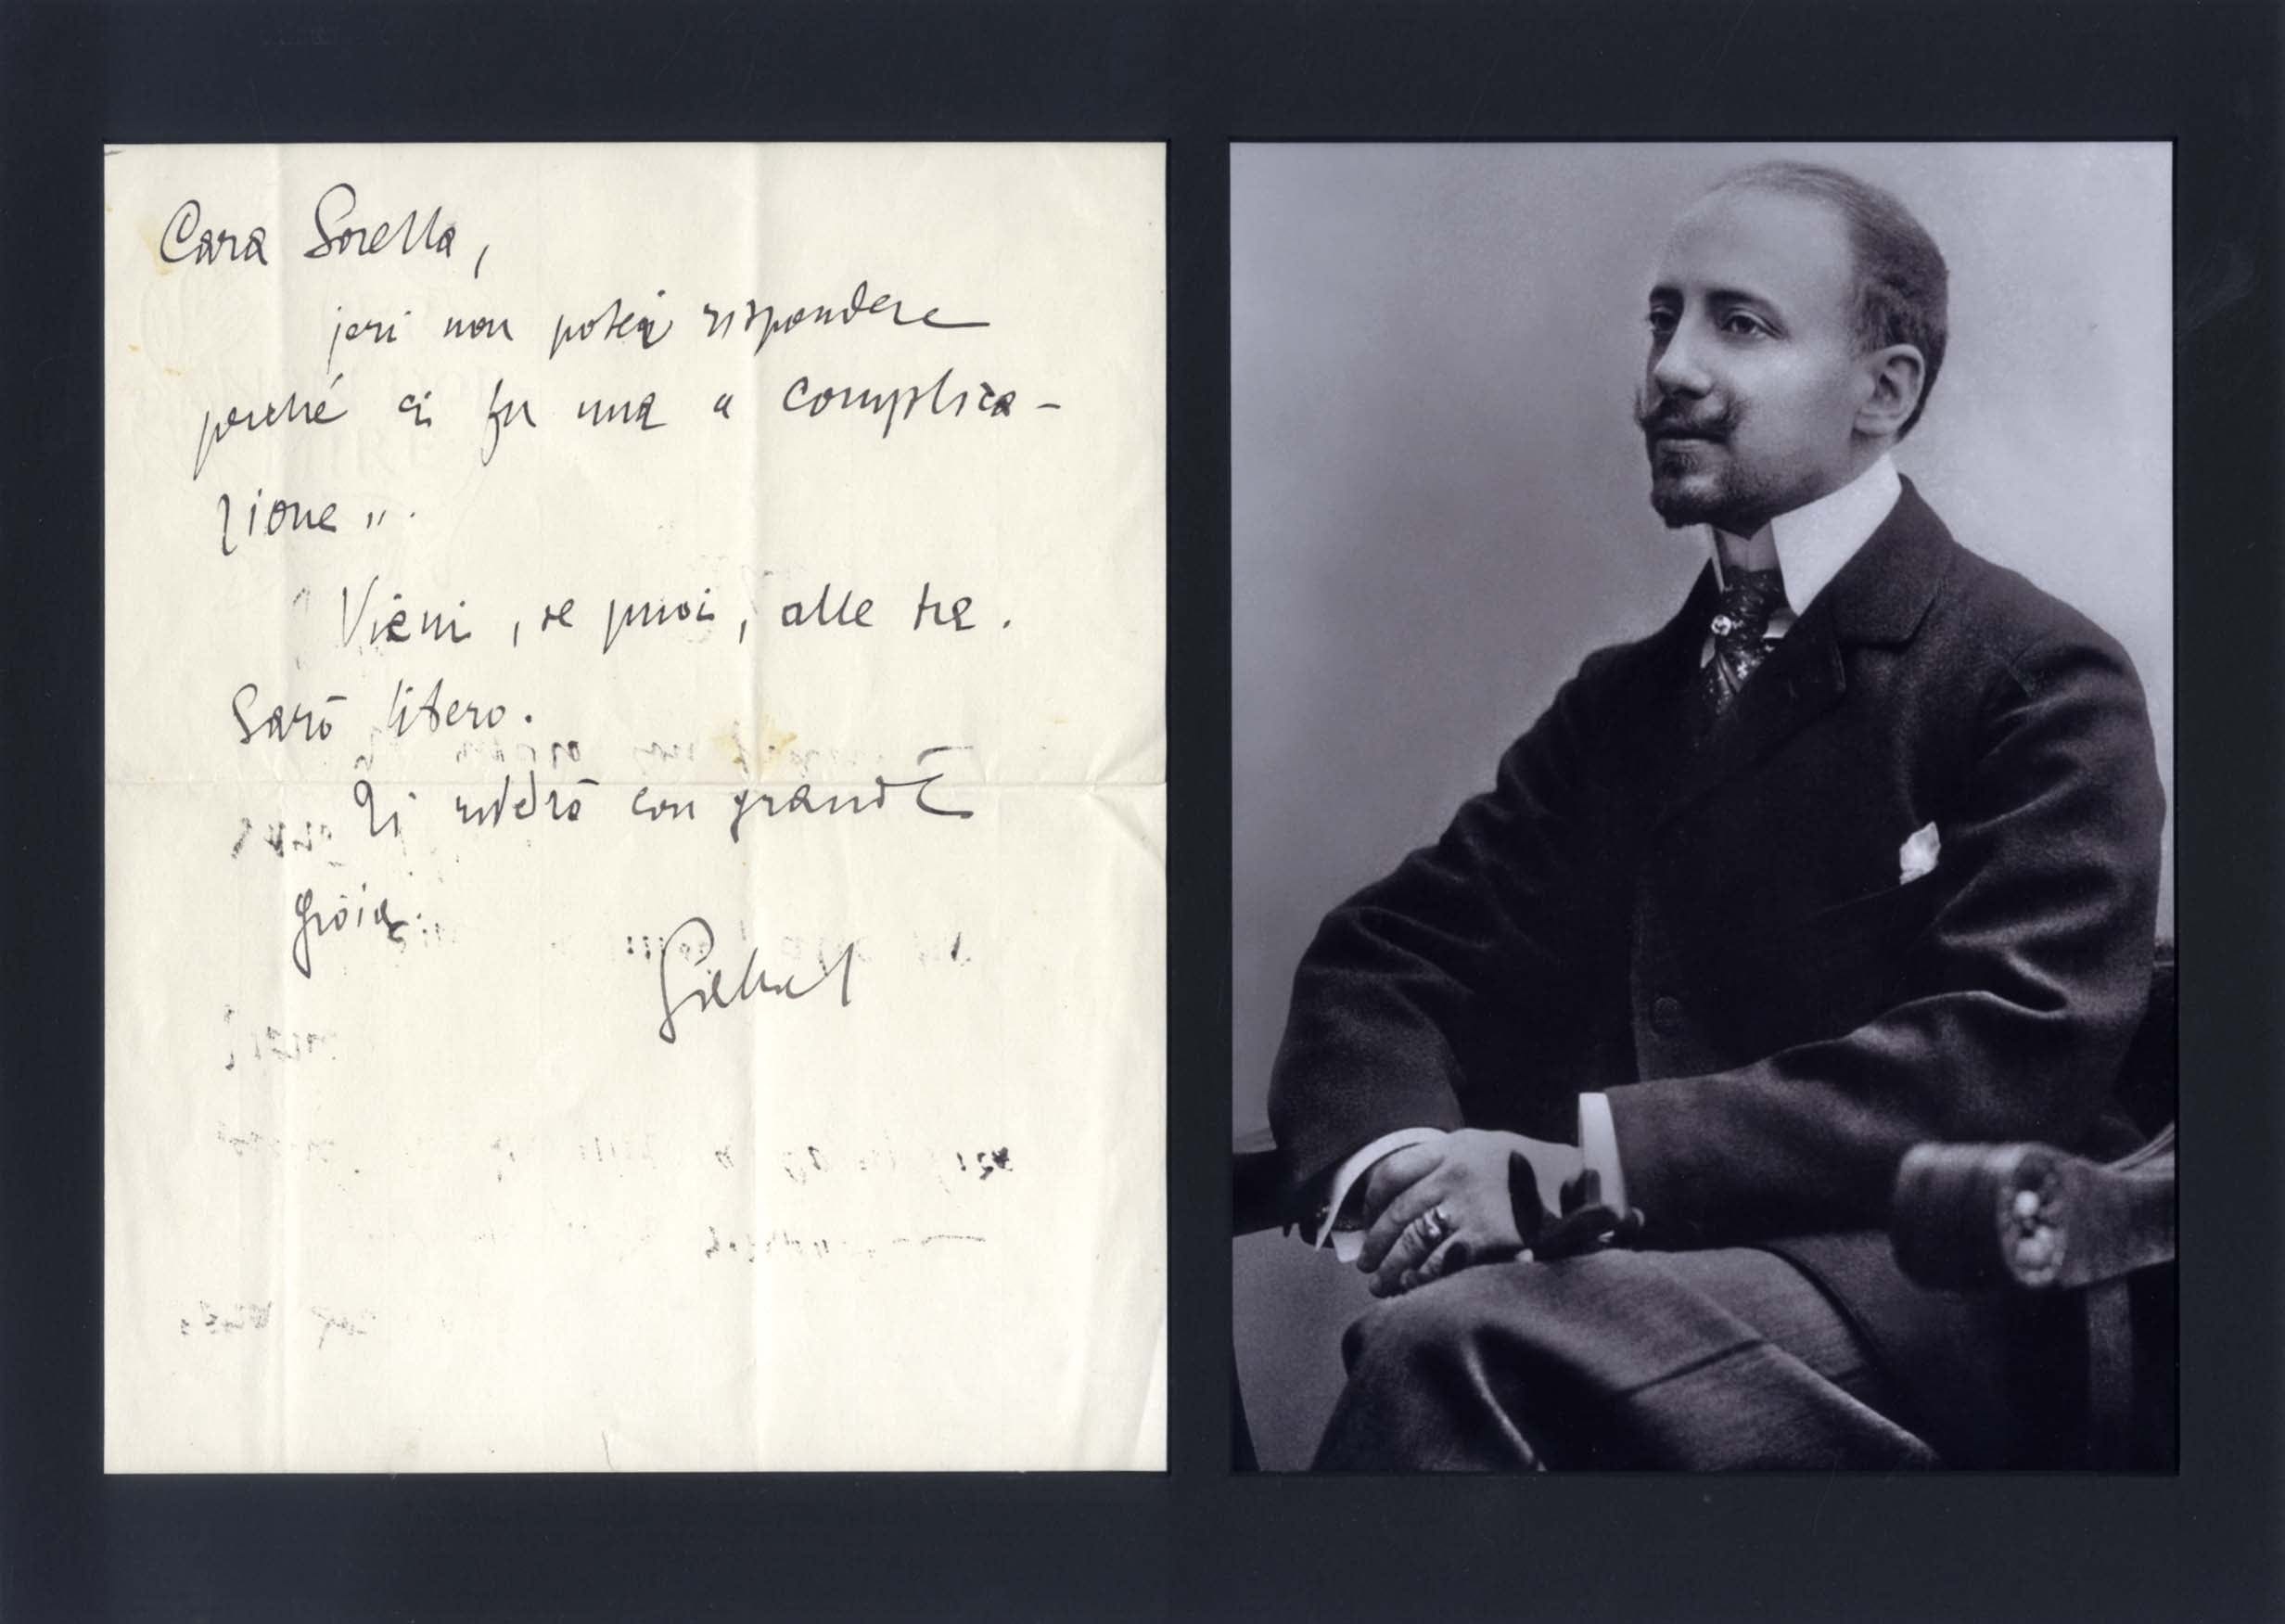 Cara Sorella,
jeri non potei rispondere
perché ci fu una " complica-
zione ".
Vieni, se puoi, alle tre.
Sarò libero.
Ti rivedrò con grande
gioia.
Gabriel